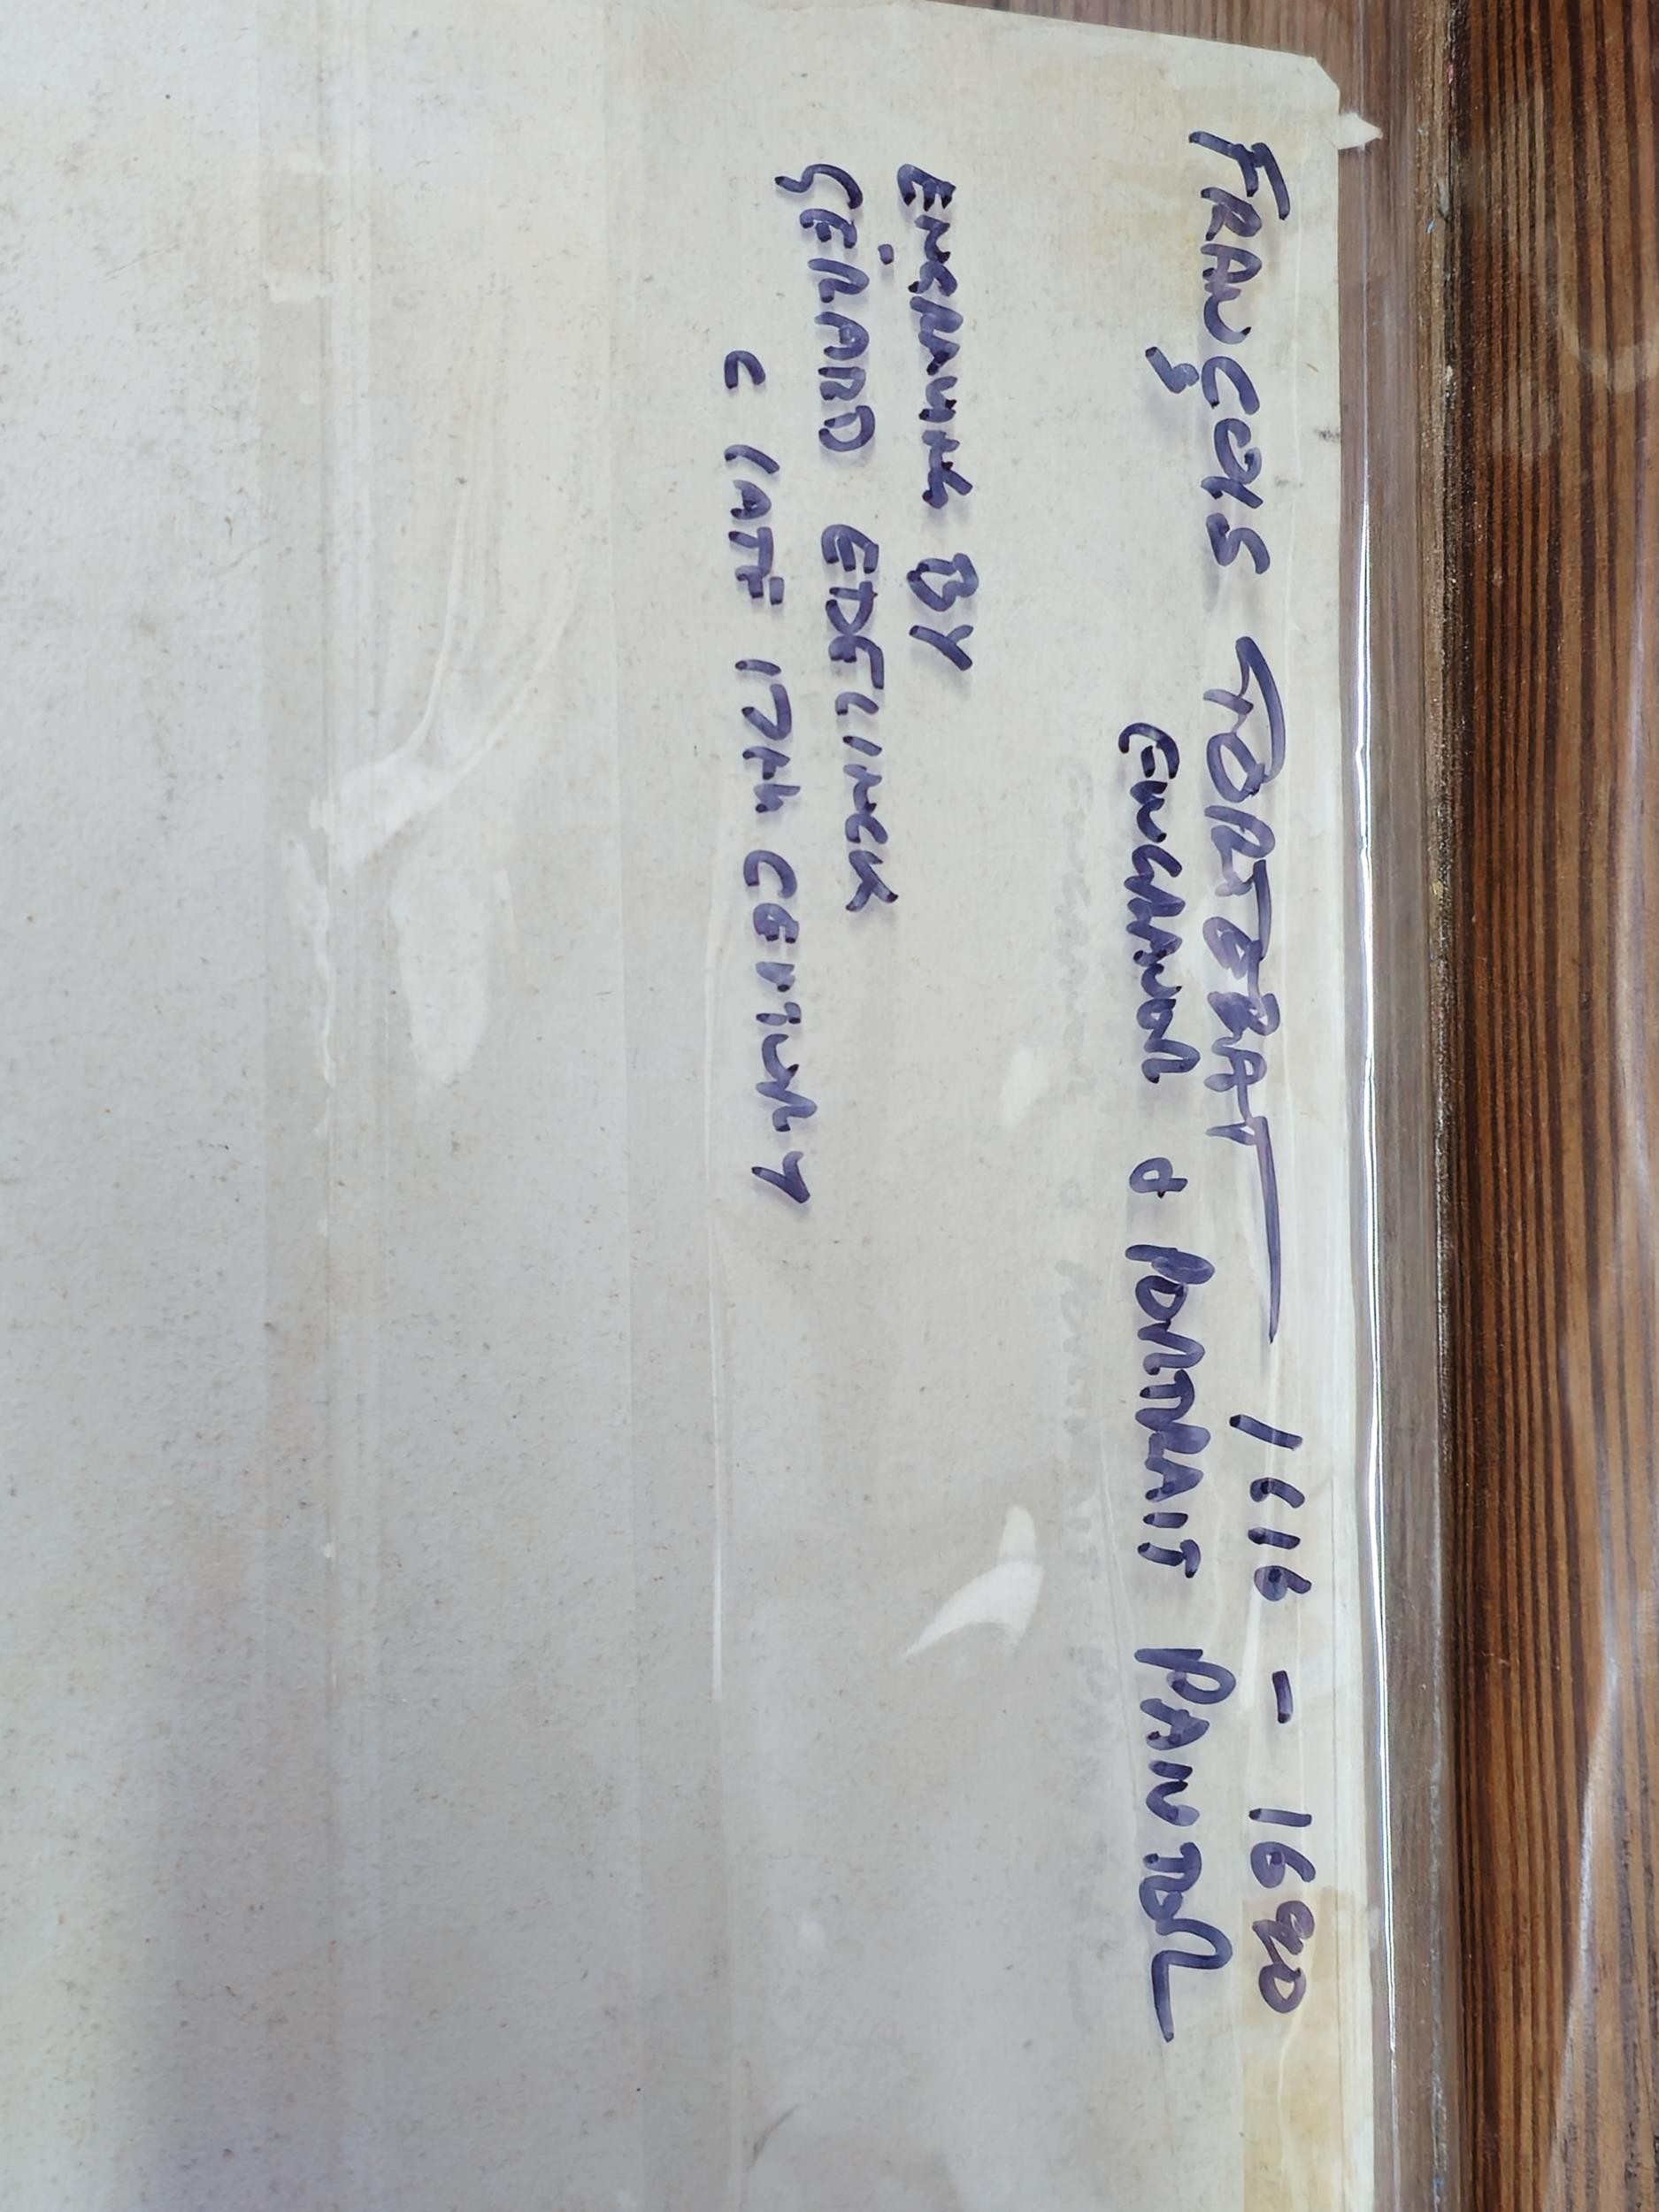 FRANÇOIS TORTEBAT 1616 - 1690
ENGRAVOR & PORTRAIT PAINTOR
ENGRAVING BY
GÉRARD EDELINCK
C LATE 17TH CENTURY